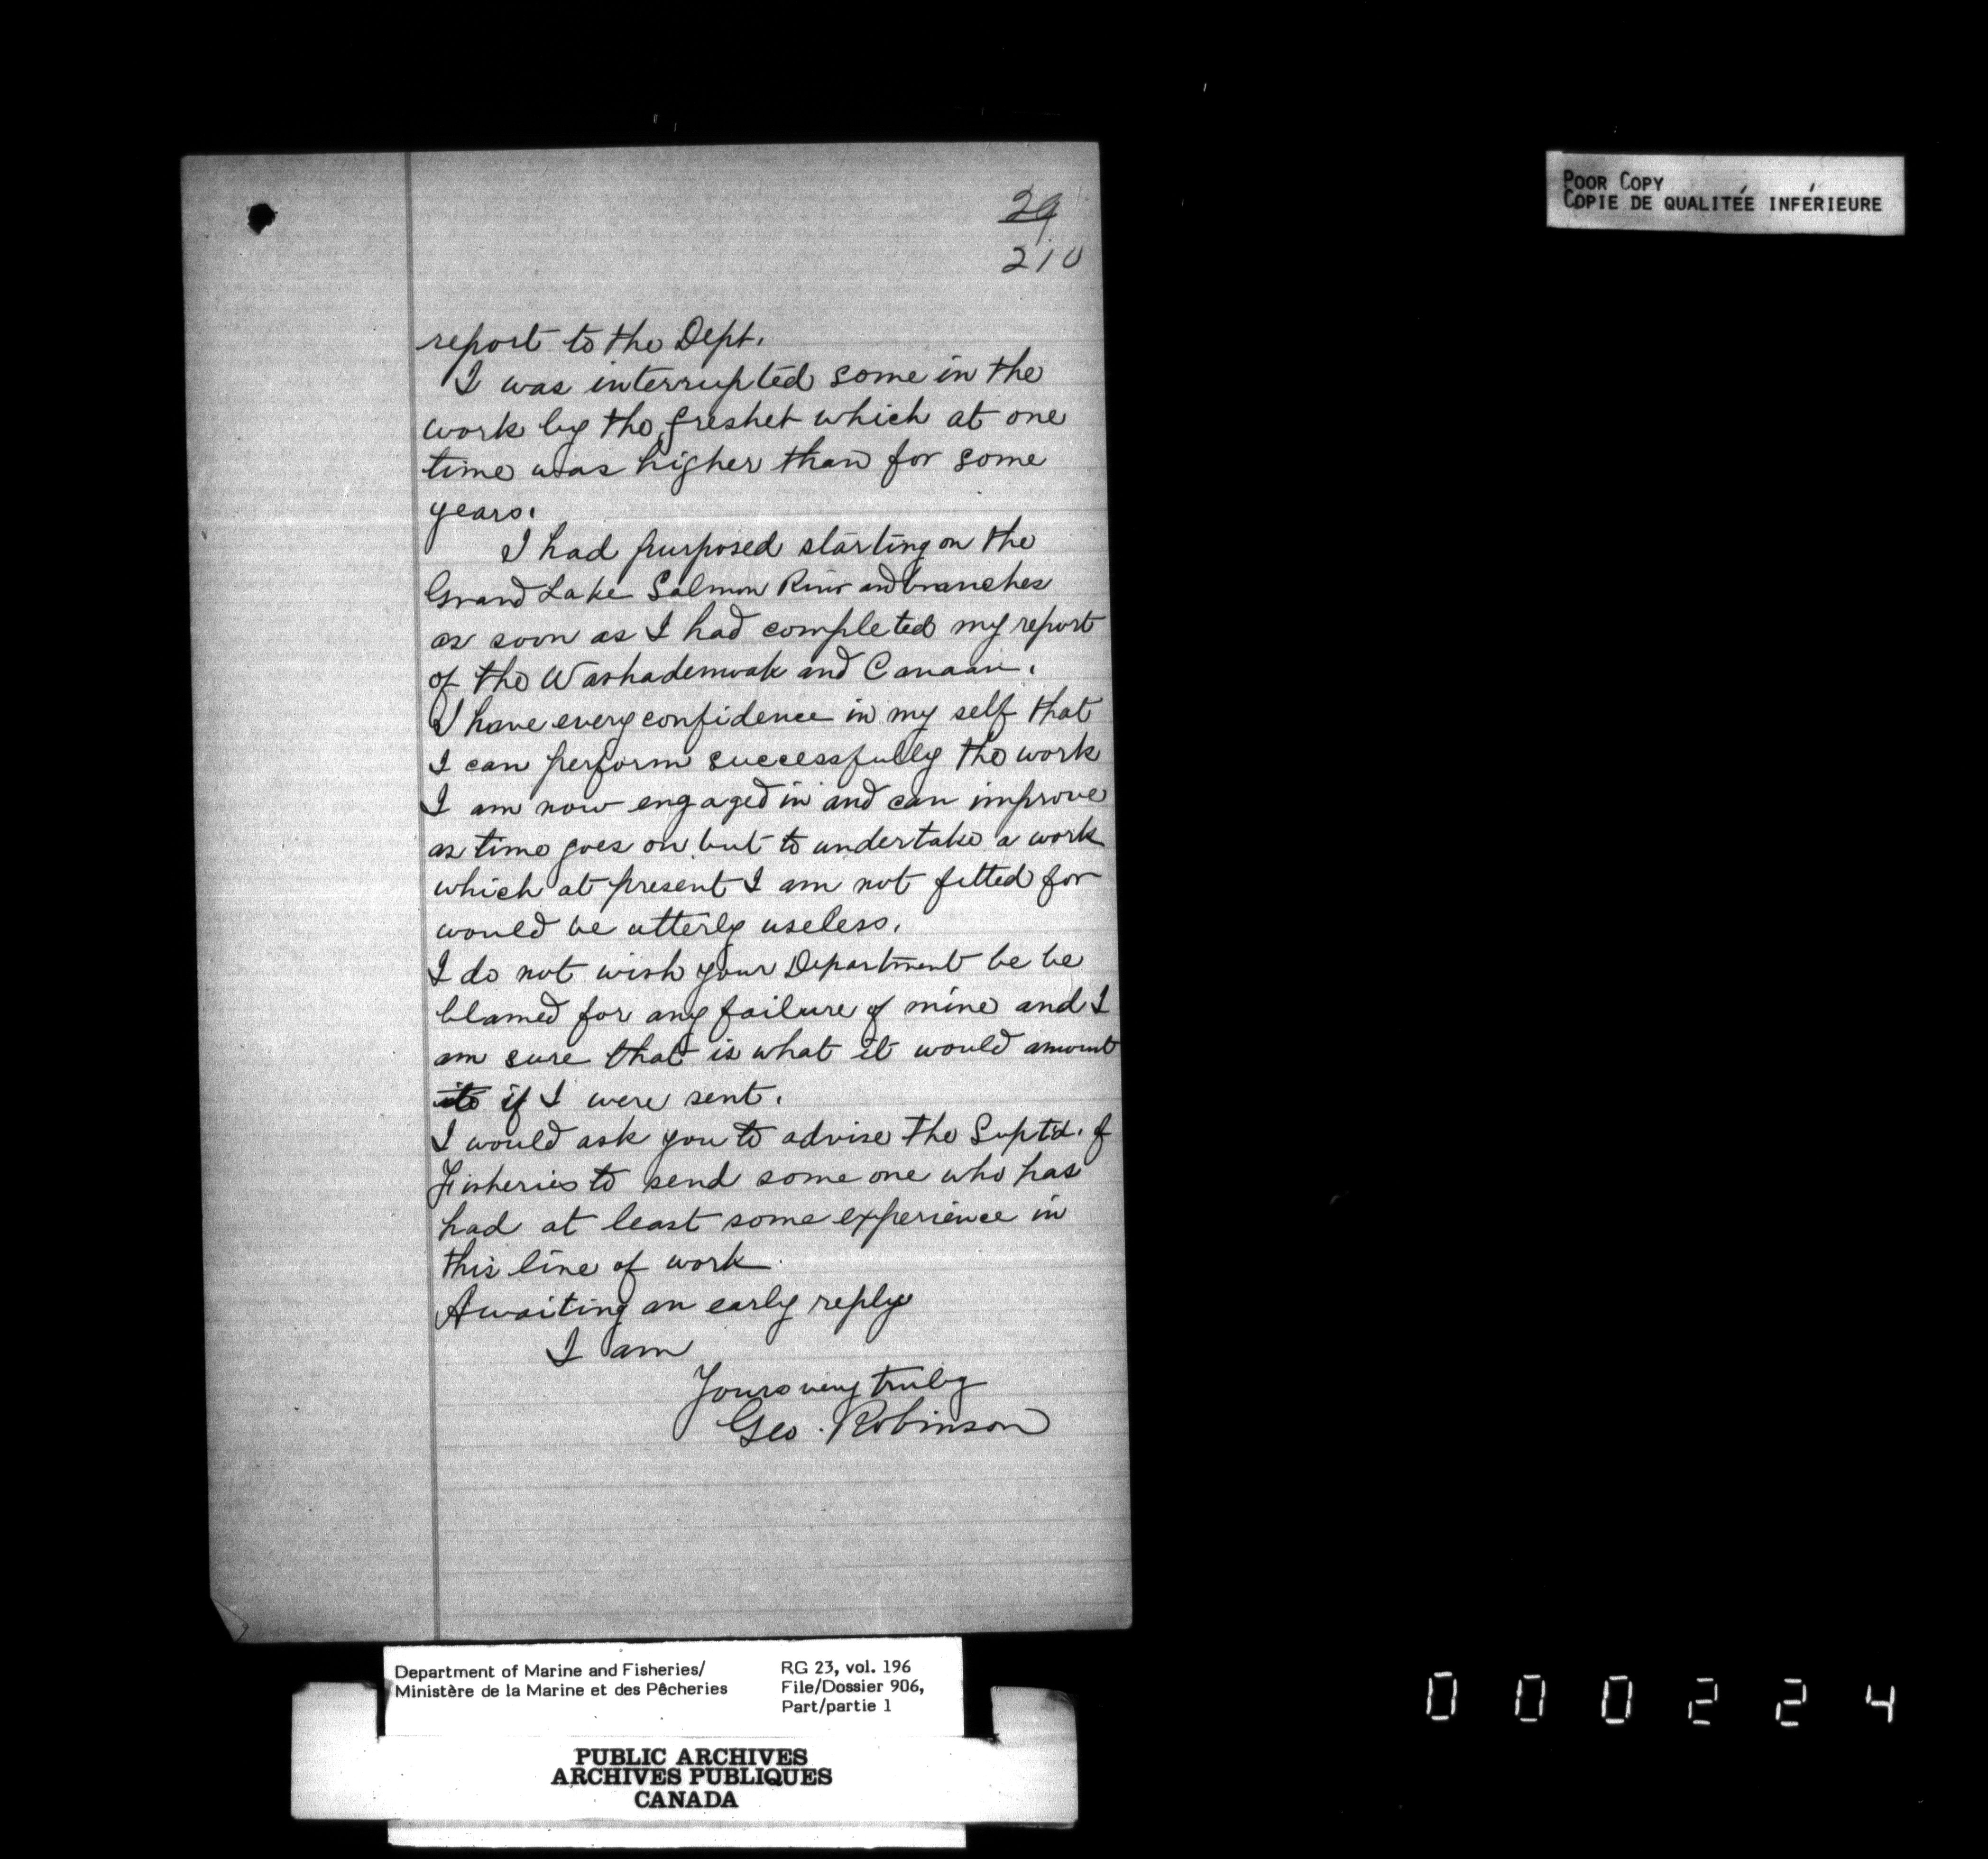 POOR COPY
COPIE DE QUALITÉE INFÉRIEURE
29
210
report to the Dept.
I was interrupted some in the
work by the freshet which at one
time was higher than for some
years.
I had purposed starting on the
Grand Lake Salmon River and branches
as soon as I had completed my report
of the Washademoak and Canaan.
I have every confidence in my self that
I can perform successfully the work
I am now engaged in and can improve
as time goes on but to undertake a work
which at present I am not fitted for
would be utterly useless.
I do not wish your Department be be
blamed for any failure of mine and I
am sure that is what it would amount
to if I were sent.
I would ask you to advise the Suptd. of
Fisheries to send some one who has
had at least some experience in
this line of work.
Awaiting an early reply
I am
Yours very truly
Geo. Robinson
Department of Marine and Fisheries/
Ministère de la Marine et des Pêcheries
RG 23, vol. 196
File/Dossier 906,
Part/partie 1
PUBLIC ARCHIVES
ARCHIVES PUBLIQUES
CANADA
000224